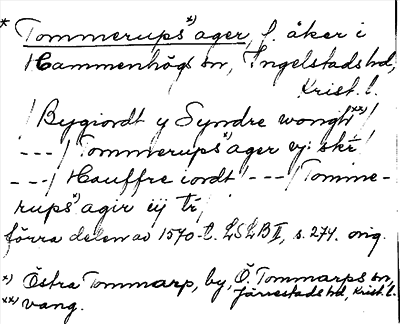 * Tommerups*) ager, f. åker i
Hammenhögs sn, Ingelstads hd,
Krist. l.
/ Bygiordt y Syndre wongh**) /
---/ Tommerups*) ager vj: skr
---/ Hauffre iordt /---/ Tomme-
rups*) agir iij tr /
förra delen av 1570-t. LSLB II, s. 274. orig.
*) Östra Tommarp, by, Ö. Tommarps sn,
Järrestads hd, Krist. l.
**) vang.